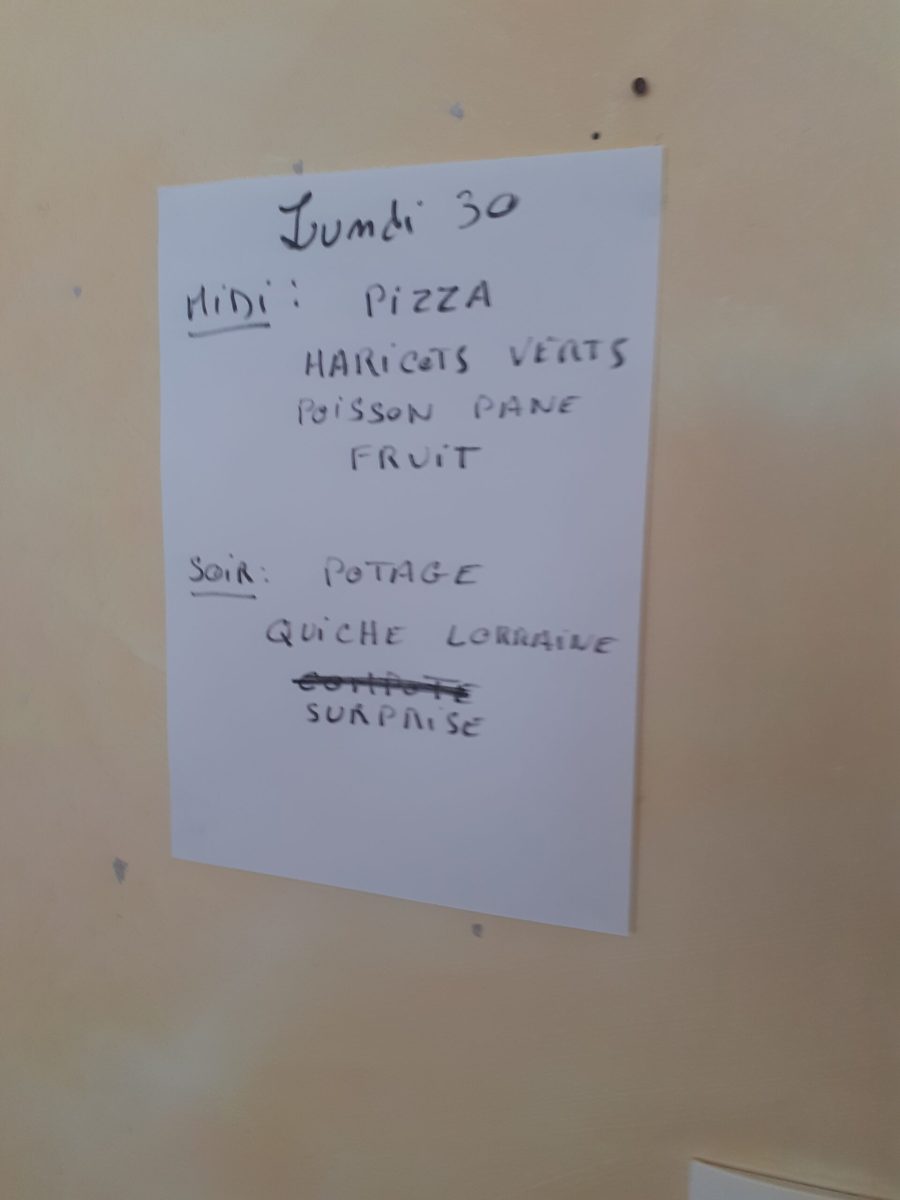 Lundi 30
MiDi : PiZZA
HARiCOTS VERTS
POiSSON PANE
FRUiT
SOiR : POTAGE
QUiCHE LORRAINE
COMPOTE
SURPRiSE